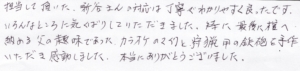 担当して頂いた、新谷さんの対応は丁寧でわかりやすく良かったです。
いろんなところに気がつかりしていただきました。特に最後に棺へ
納める父の趣味であった、カラオケのマイクと狩猟用の鉄砲を手作り
いただき感動しました。本当にありがとうございました。